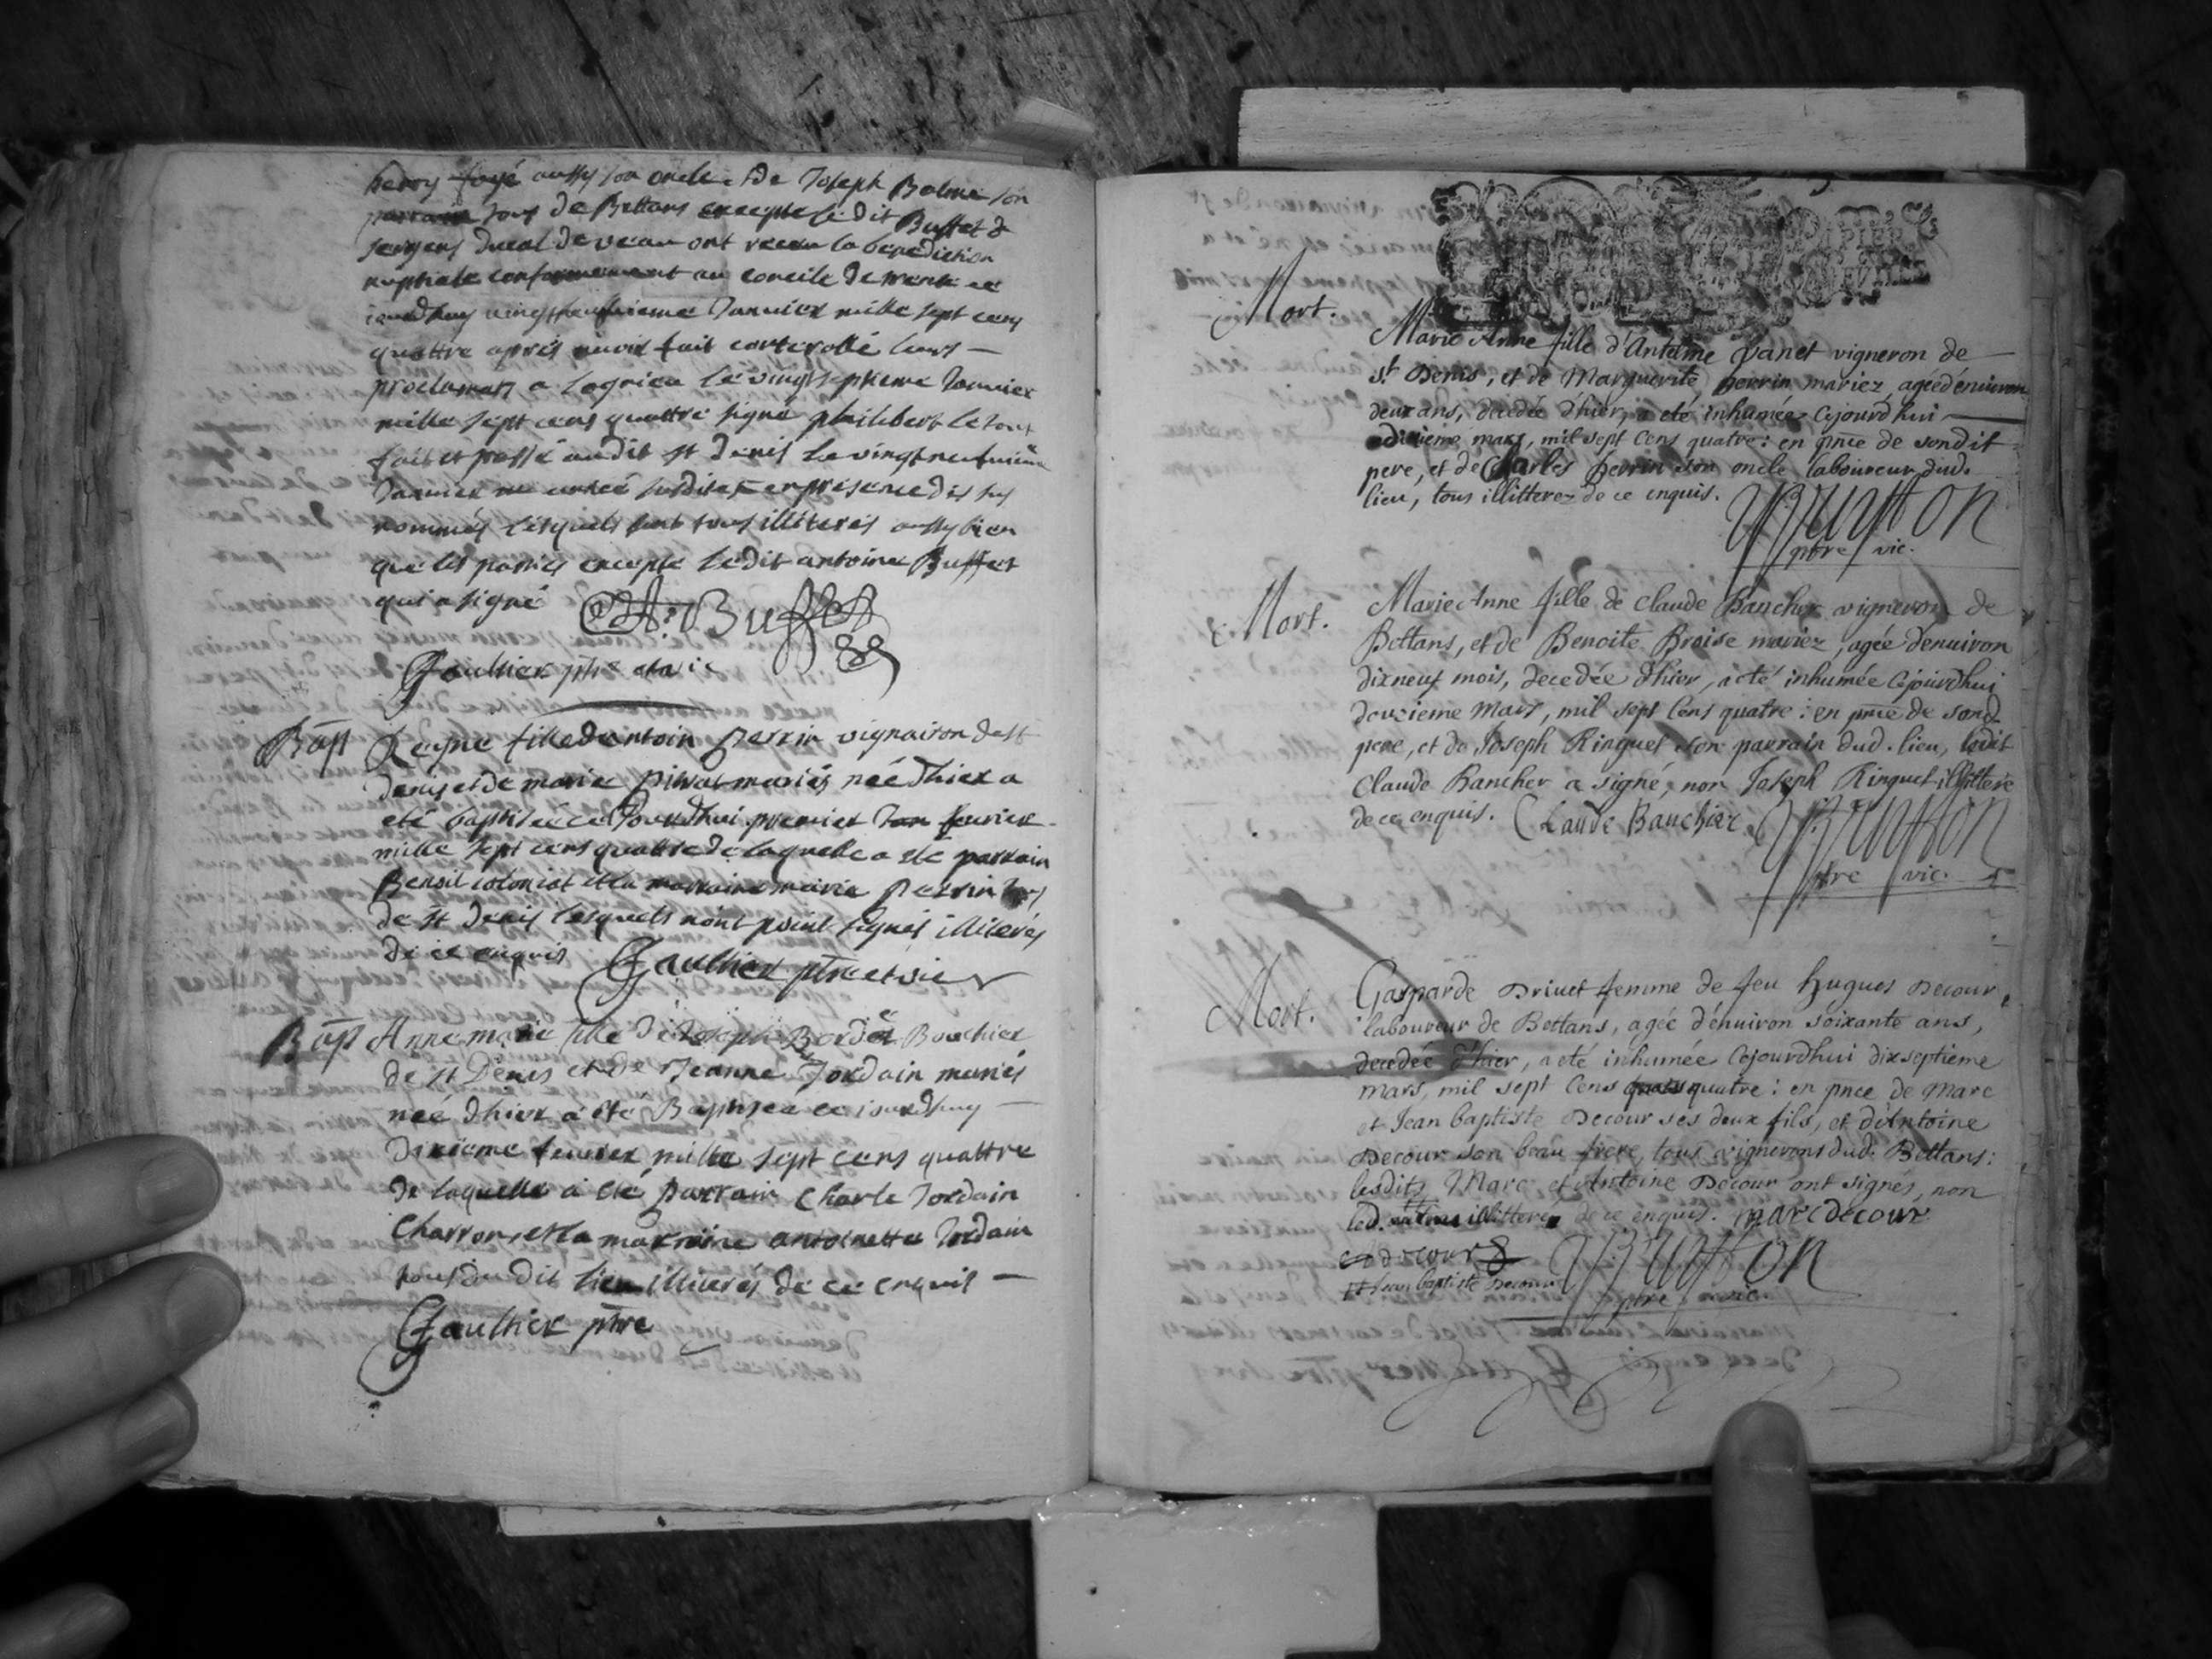 henry foyé aussy son oncle et de Joseph Balme son
parrain tous de Bettans excepté le dit Buffet &
de veau ont receu la benediction
nuptiale conformement au concile de trente ce
jourdhuy vingtneufvieme Janvier mille sept cens
quattre aprés avoir fait conterollé leurs —
proclamaõn a Lagnieu le vingtseptieme Janvier
mille sept cens quattre signé philibert le tout
fait et passé audit st denis le vingtneufvieme
Janvier an susdite et en presence des sus
nommés lesquels sont tous illiterés aussy bien
que les parties excepte ledit antoine Buffet
qui a signé A. Buffet
Gaultier ptre et vic
Bap Reyne fille dantoin perrin vignairon de st
denis et de marie pivat mariés née dhier a
eté baptisée ce Jourdhui premier Jan fevrier
mille sept cens quattre de laquelle a eté parrain
Benoit coloniat et la marraine marie perrin tous
de st denis lesquels nont point signés illiterés
de ce enquis Gaultier ptre et vic
Bap Anne marie fille de Joseph Bordet Bouchier
de st Denis et de Jeanne Jordain mariés
née dhier a été Baptisée ce jourdhuy —
Dixieme fevrier mille sept cens quattre
de laquelle a eté parrain Charle Jordain
Charron, et la marraine antoinette Jordain
tous du dit lieu illiterés de ce enquis —
Gaultier ptre
Mort.
Marie Anne fille d'Antelme panet vigneron de
st. Denis, et de Marguerite perrin mariez, agée d'énuiron
deux ans, decedée d'hier, a eté inhumée cejourd'hui
dixieme mars, mil sept cens quatre : en pñce de sondit
pere, et de Charles perrin son oncle laboureur dud.
lieu, tous illitterez de ce enquis.
ptre vic.
Mort.
Marie Anne fille de Claude Bancher vigneron de
Bettans, et de Benoite Broise mariez, agée denuiron
dixneuf mois, decedée d'hier, a eté inhumée cejourdhui
douzieme Mars, mil sept cens quatre : en pñce de sond.
pere, et de Joseph Ringuet son parrain dud. lieu, ledit
Claude Bancher a signé, non Joseph Ringuet illitteré
de ce enquis. Claude Banchier
ptre vic.
Mort.
Gasparde Driuet femme de feu Hugues Decour,
laboureur de Bettans, agée d'énuiron soixante ans,
decedée d'hier, a eté inhumée cejourd'hui dixseptieme
mars, mil sept cens quatre : en pnce de Marc
et Jean baptiste Decour ses deux fils, et d'Antoine
Decour son beau frere, tous vignerons dud. Bettans :
lesdits Marc et Antoine Decour ont signés, non
led. illitteré de ce enquis. marc decour
decour
et Jean baptiste Decour
ptre vic.